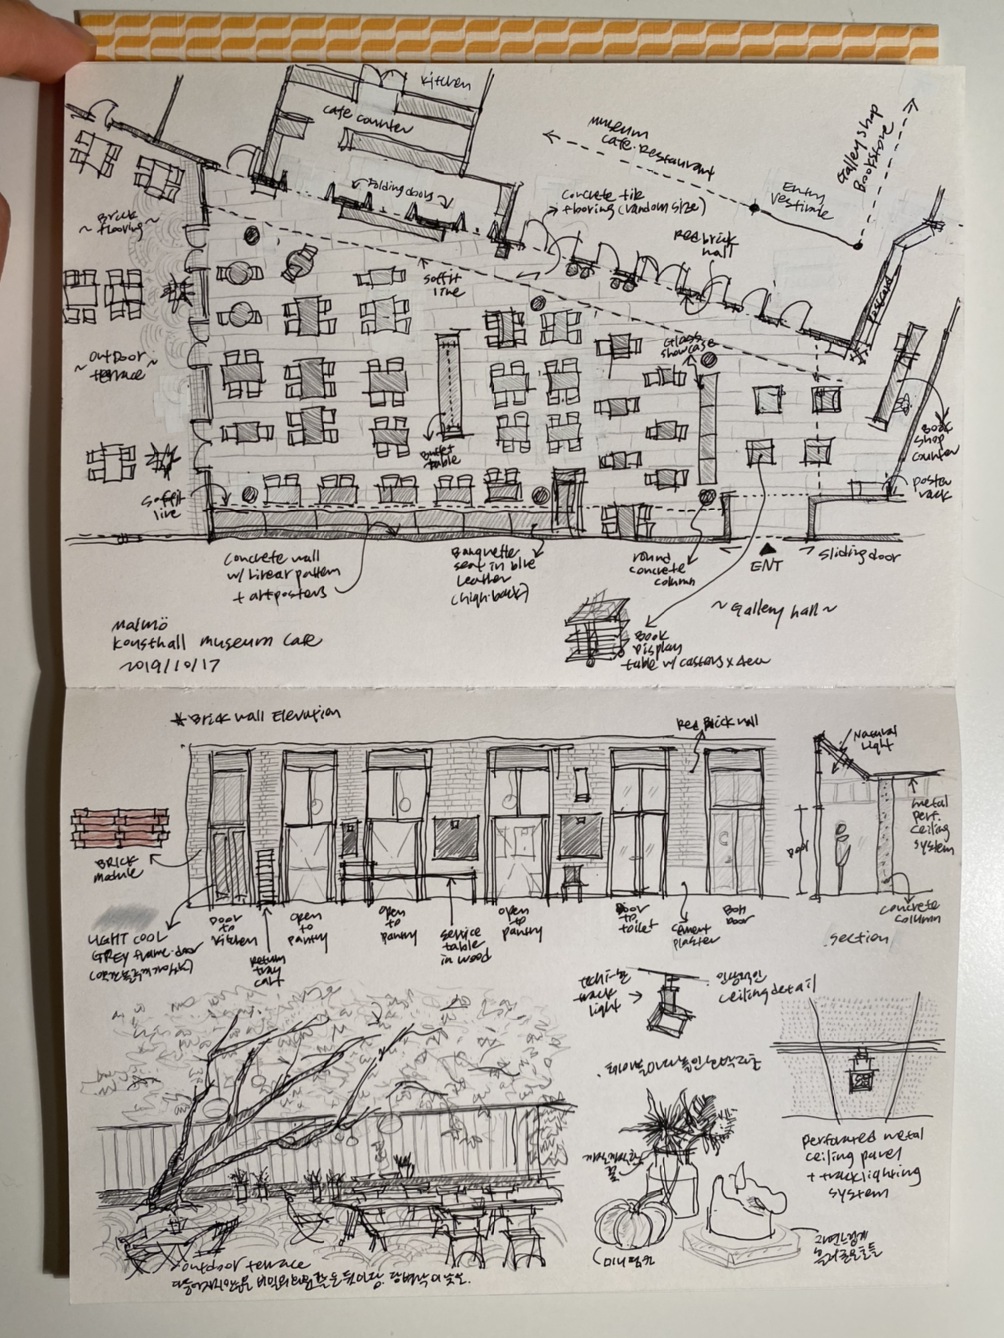 Kitchen
cafe counter
Folding doors
museum
cafe. Restaurant
Gallery shop
Bookstore
Entry
Vestibule
Concrete tile
flooring (random size)
Red brick
wall
Brick
~ flooring ~
Soffit
line
Glass
showcase
Postcard
~ outdoor
terrace ~
Buffet
table
Book
shop
counter
poster
rack
Soffit
line
Concrete wall
w/ linear pattern
+ art posters
Banquette
seat in blue
leather
(high-back)
round
concrete
column
ENT
Sliding door
~ Gallery hall ~
Book
Display
table w/ castors x 4ea
Malmö
Konsthall museum cafe
2019/10/17
* Brick wall Elevation
Red Brick wall
Natural
Light
metal
perf.
ceiling
system
BRICK
module
LIGHT COOL
GREY frame + door
Door
to
kitchen
Return
tray
cart
open
to
pantry
open
to
pantry
service
table
in wood
open
to
pantry
Door
to
toilet
cement
plaster
Door
concrete
column
section
track
light
인상적인
ceiling detail
perforated metal
ceiling panel
+ track lighting
system
꽃
(미니 펌킨
outdoor terrace